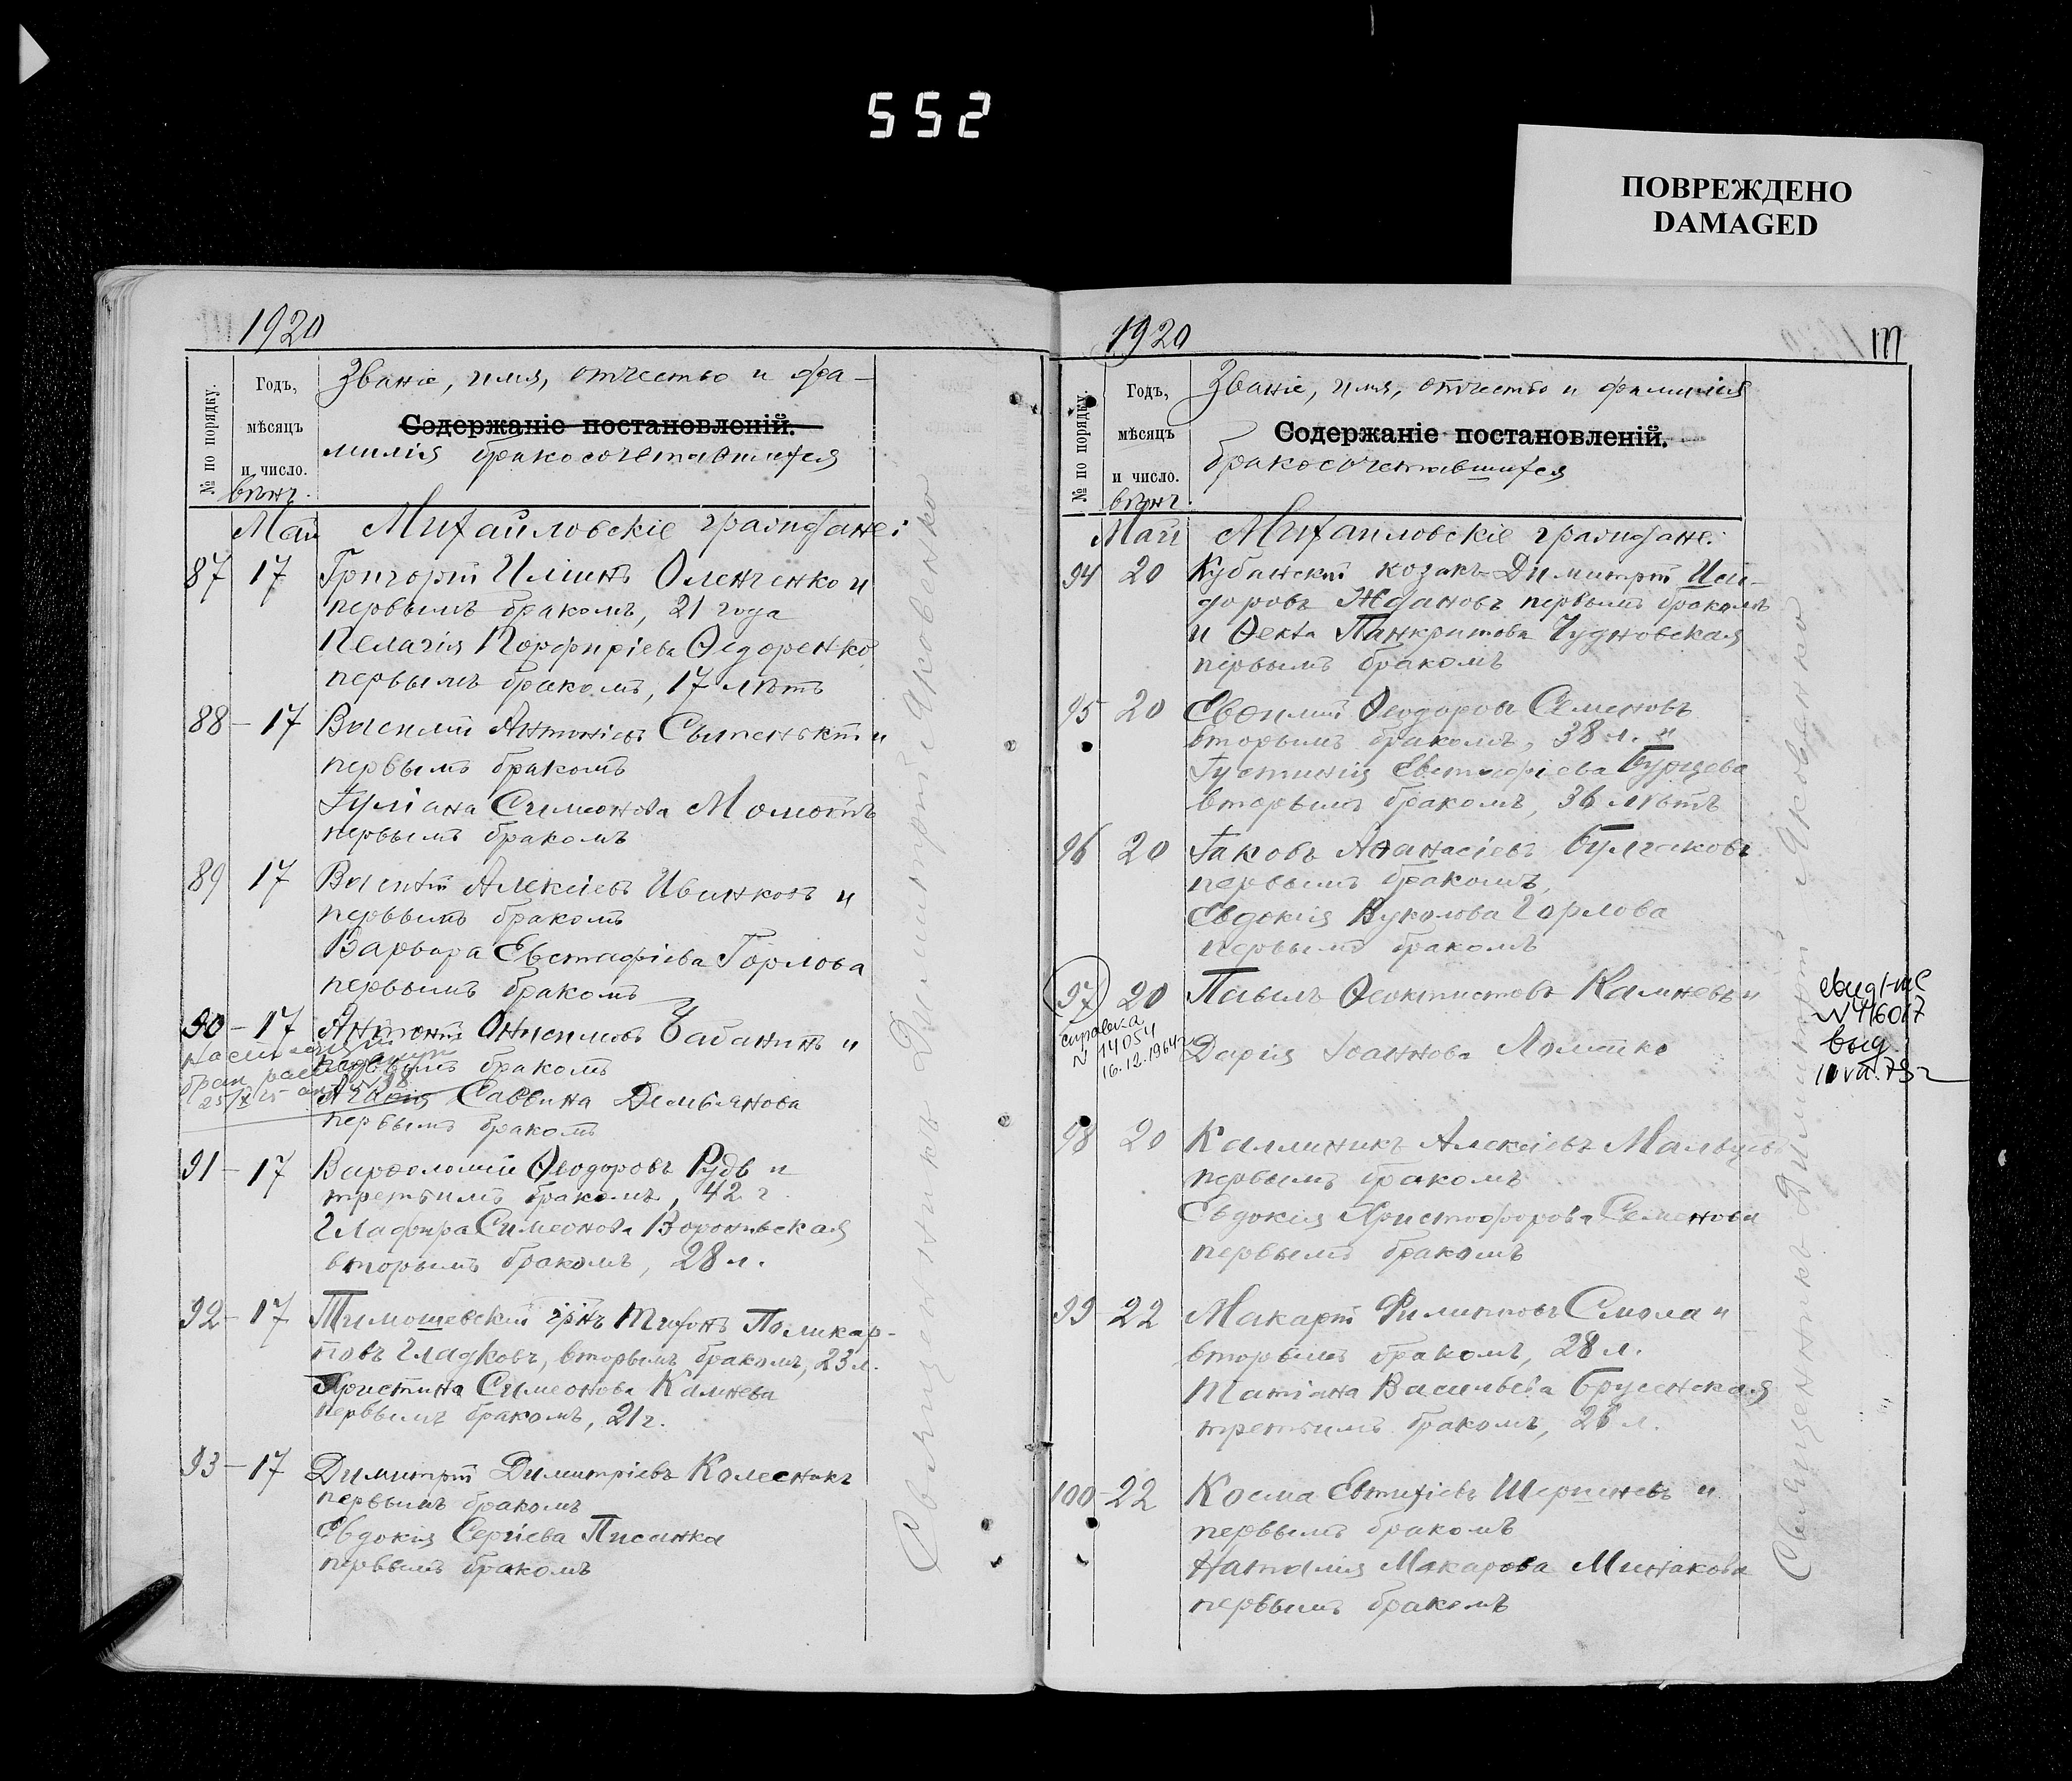 552
ПОВРЕЖДЕНО
DAMAGED
1920
№ по порядку.
Годъ,
мѣсяцъ
и число.
вѣнч.
Званіе, имя, отчество и фа-
Содержаніе постановленій.
милія бракосочетавшихся
Май Михайловскіе граждане:
87 17 Григорій Ильинъ Оленченко и
первымъ бракомъ, 21 года
Пелагія Порфиріева Ѳедоренко
первымъ бракомъ, 17 лѣтъ
88 - 17 Василій Антоніевъ и
первымъ бракомъ
Іуліана Симеонова Момотъ
первымъ бракомъ
89 17 Алексіевъ Иванковъ и
первымъ бракомъ
Варвара Евстафіева Горлова
первымъ бракомъ
90 - 17 Антоній Онисимовъ Бабанинъ и
первымъ бракомъ
брак
Саввина Демьянова
первымъ бракомъ
91 - 17 Варѳоломей Ѳеодоровъ Рудь и
третьимъ бракомъ, 42 г.
Глафира Симеонова
вторымъ бракомъ, 28 л.
92 - 17 Тимошевскій гр-нъ Тихонъ Поликар-
повъ Гладковъ, вторымъ бракомъ, 23 л.
Христина Симеонова Камнева
первымъ бракомъ, 21 г.
93 - 17 Димитрій Димитріевъ Колесникъ
первымъ бракомъ
Евдокія Сергіева Писанка
первымъ бракомъ
Священникъ Димитрій Яковенко
1920
111
№ по порядку.
Годъ,
мѣсяцъ
и число.
вѣнч.
Званіе, имя, отчество и фамилія
Содержаніе постановленій.
бракосочетавшихся
Май Михайловскіе граждане:
94 20 Кубанскій козакъ Димитрій Иси-
доровъ Ждановъ первымъ бракомъ
и Ѳекла Панкратова Чудновская
первымъ бракомъ
95 20 Евѳимій Ѳеодоровъ Семеновъ
вторымъ бракомъ, 38 л. и
Іустинія Евстафіева Бурцева
вторымъ бракомъ, 36 лѣтъ
96 20 Іаковъ Аѳанасіевъ Булгаковъ
первымъ бракомъ,
Евдокія Вуколова Горлова
первымъ бракомъ
97 20 Павелъ Ѳеоктистовъ Камневъ и
справка
N 14054
16.12.1964 г.
Дарія Іоаннова Ломейко
выд.
98 20 Каллиникъ Алексіевъ Мальцевъ
первымъ бракомъ
Евдокія Христофорова Семенова
первымъ бракомъ
99 - 22 Макарій Филипповъ Смола и
вторымъ бракомъ, 28 л.
Татіана Васильева Брусенская
третьимъ бракомъ, 26 л.
100 - 22 Косма Евтихіевъ и
первымъ бракомъ
Наталія Макарова Минакова
первымъ бракомъ
Священникъ Димитрій Яковенко